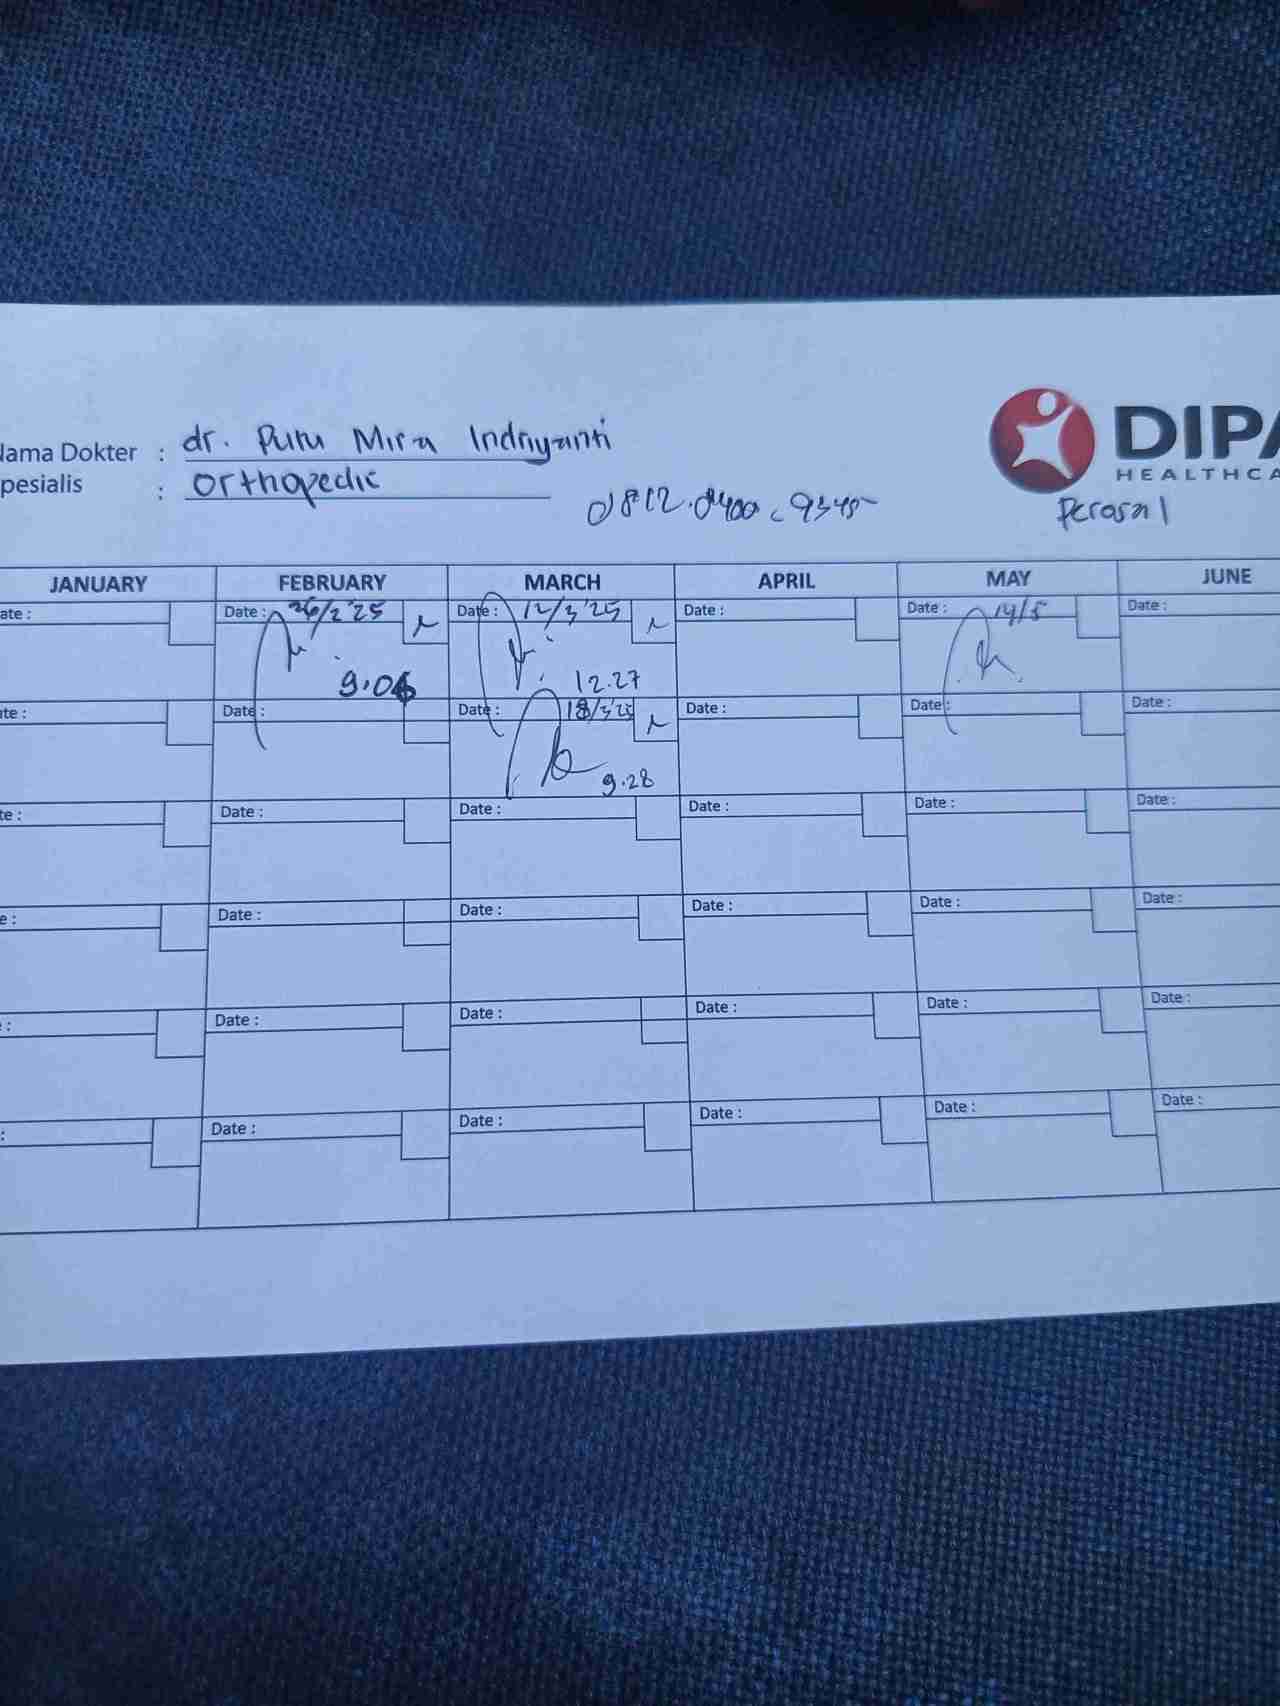 Nama Dokter : dr. Putu Mira Indriyanti
pesialis : Orthopedic
DIPA
HEALTHCA
JANUARY FEBRUARY MARCH APRIL MAY JUNE
ate : Date : 26/2'25 Date : 12/3'25 Date : Date : 14/5 Date :
9.06 12.27
ate : Date : Date : 18/3'25 Date : Date : Date :
9.28
te : Date : Date : Date : Date : Date :
e : Date : Date : Date : Date : Date :
: Date : Date : Date : Date : Date :
: Date : Date : Date : Date : Date :